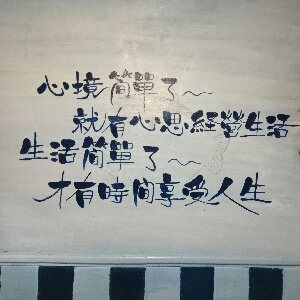 心境簡單了~~
就有心思經營生活
生活簡單了~~
才有時間享受人生